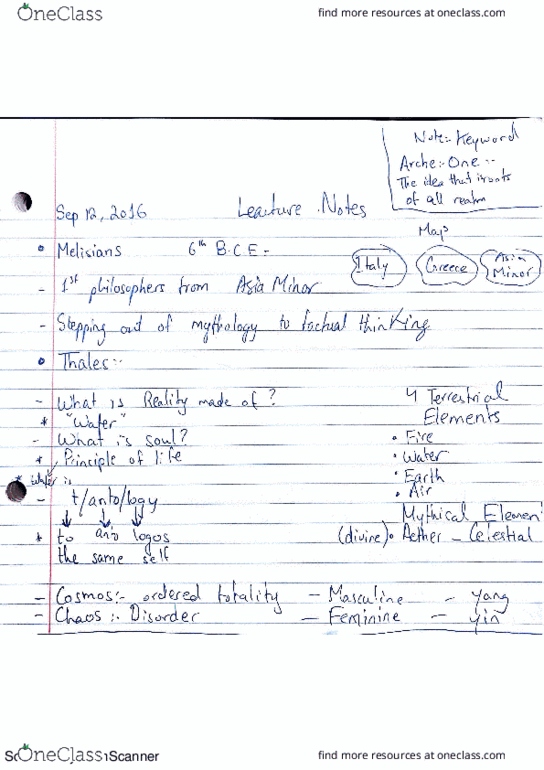 OneClass
find more resources at oneclass.com
Note:- Keyword
Arche:- One :-
The idea that
of all realm
Sep 12, 2016
Leacture Notes
Map
Melisians 6th B.C.E:-
Italy
Greece
Asia Minor
- 1st philosophers from Asia Minor
- Stepping out of mythology to factual thinking
Thales:-
- What is Reality made of?
* "Water"
- What is soul?
* Principle of life
* Water is
- t/anto/logy
* to logos
the same self
4 Terrestrial
Elements
• Fire
• Water
• Earth
• Air
Mythical Elemen
(divine) • Aether - Celestial
- Cosmos:- ordered totality - Masculine - Yang
- Chaos:- Disorder - Feminine - yin
OneClass
Scanner
find more resources at oneclass.com